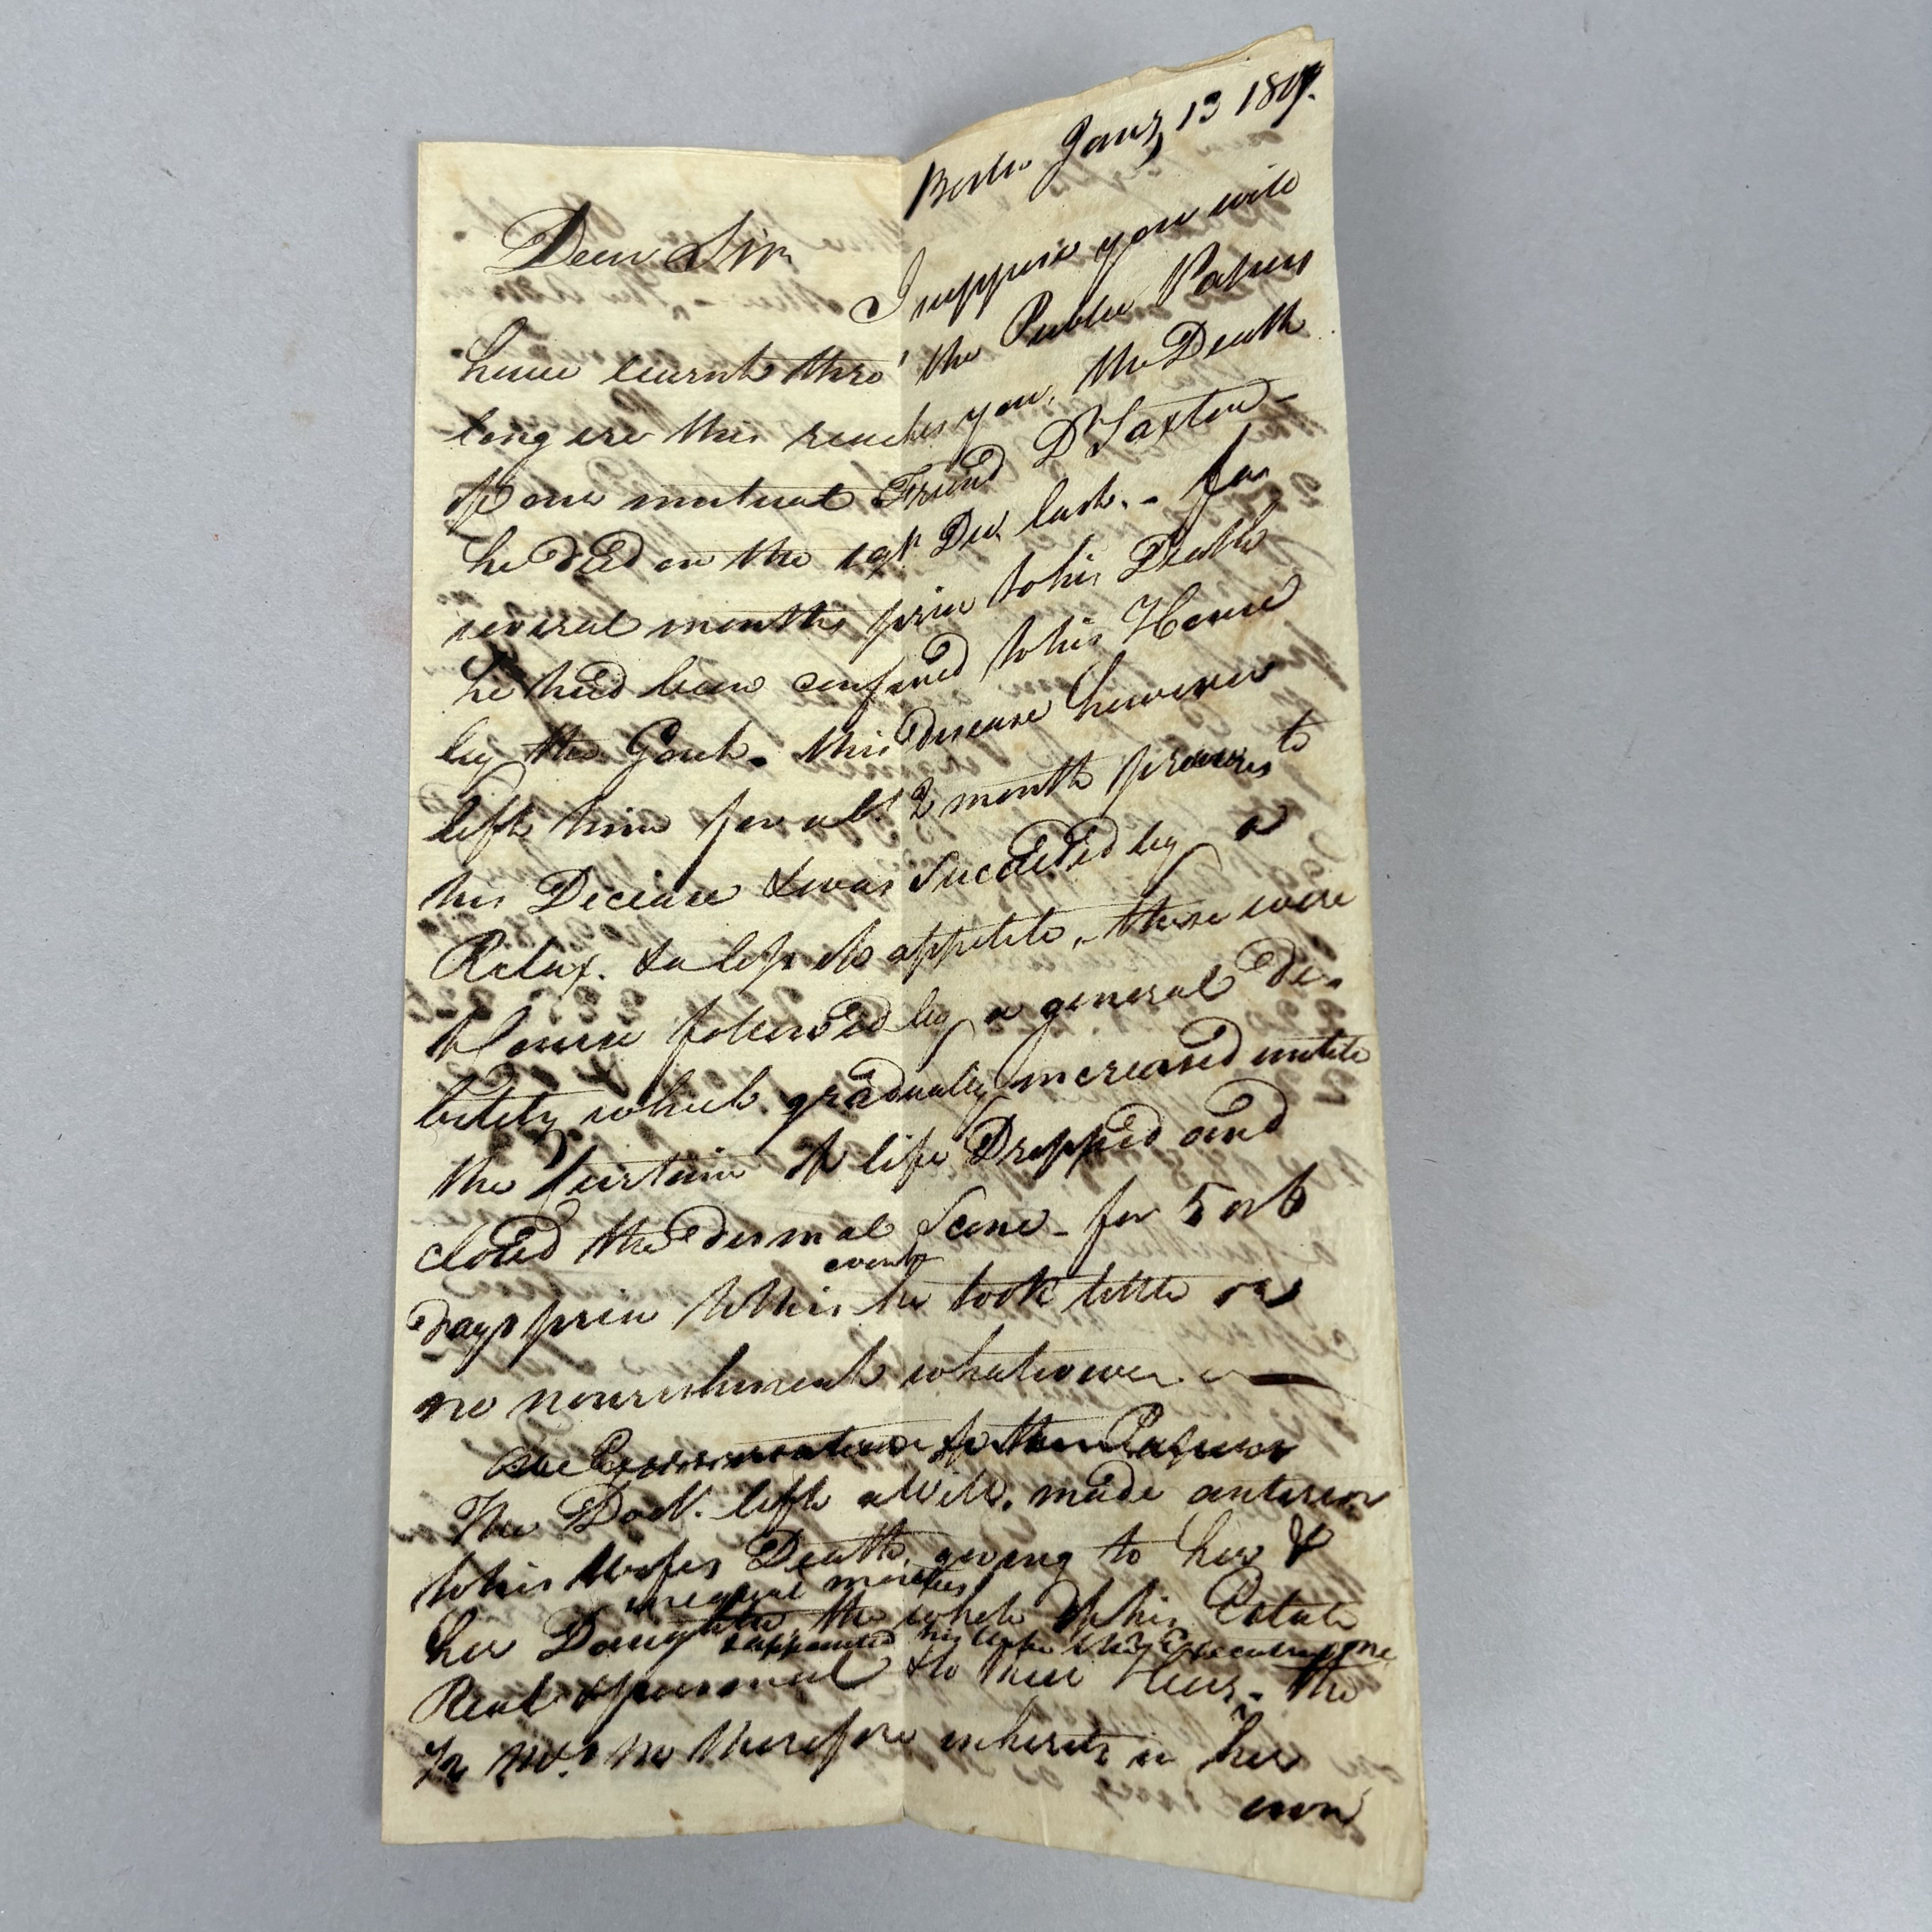 Janry 13
Dear Sir,
I suppose you will
have learnt thro' the Public Papers
long ere this reaches you, the Death
of our mutual Friend Dr Saxton -
he died on the 19th Decr last. - for
several months prior to his Death
he had been confined to his House
by the Gout. this disease however
left him for abt 2 month previous to
his Decease & was Succeeded by a
Relax. & a loss of appetite, these were
of course followed by a general de-
bility which gradually increased untill
the Curtain of life Dropped and
closed the dismal Scene - for 5 or 6
days prior to this event he took little or
no nourishment whatsoever. —
The Doctr. left a Will, made anterior
to his Wifes Death, giving to her &
her Daughter in equal moieties the whole of his Estate
Real & personal & to their Heirs - & appointed his Wife Executrix the
therefore inherits in her
own